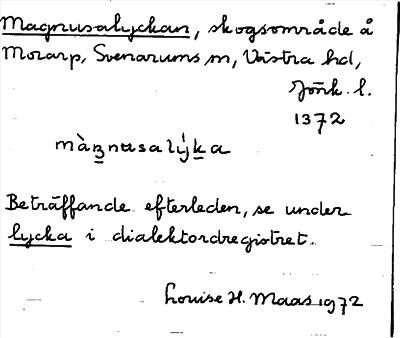 Magnusalyckan, skogsområde å
Morarp, Svenarums sn, Västra hd,
Jönk. l.
1372
Beträffande efterleden, se under
lycka i dialektordregistret.
Louise H. Maas 1972